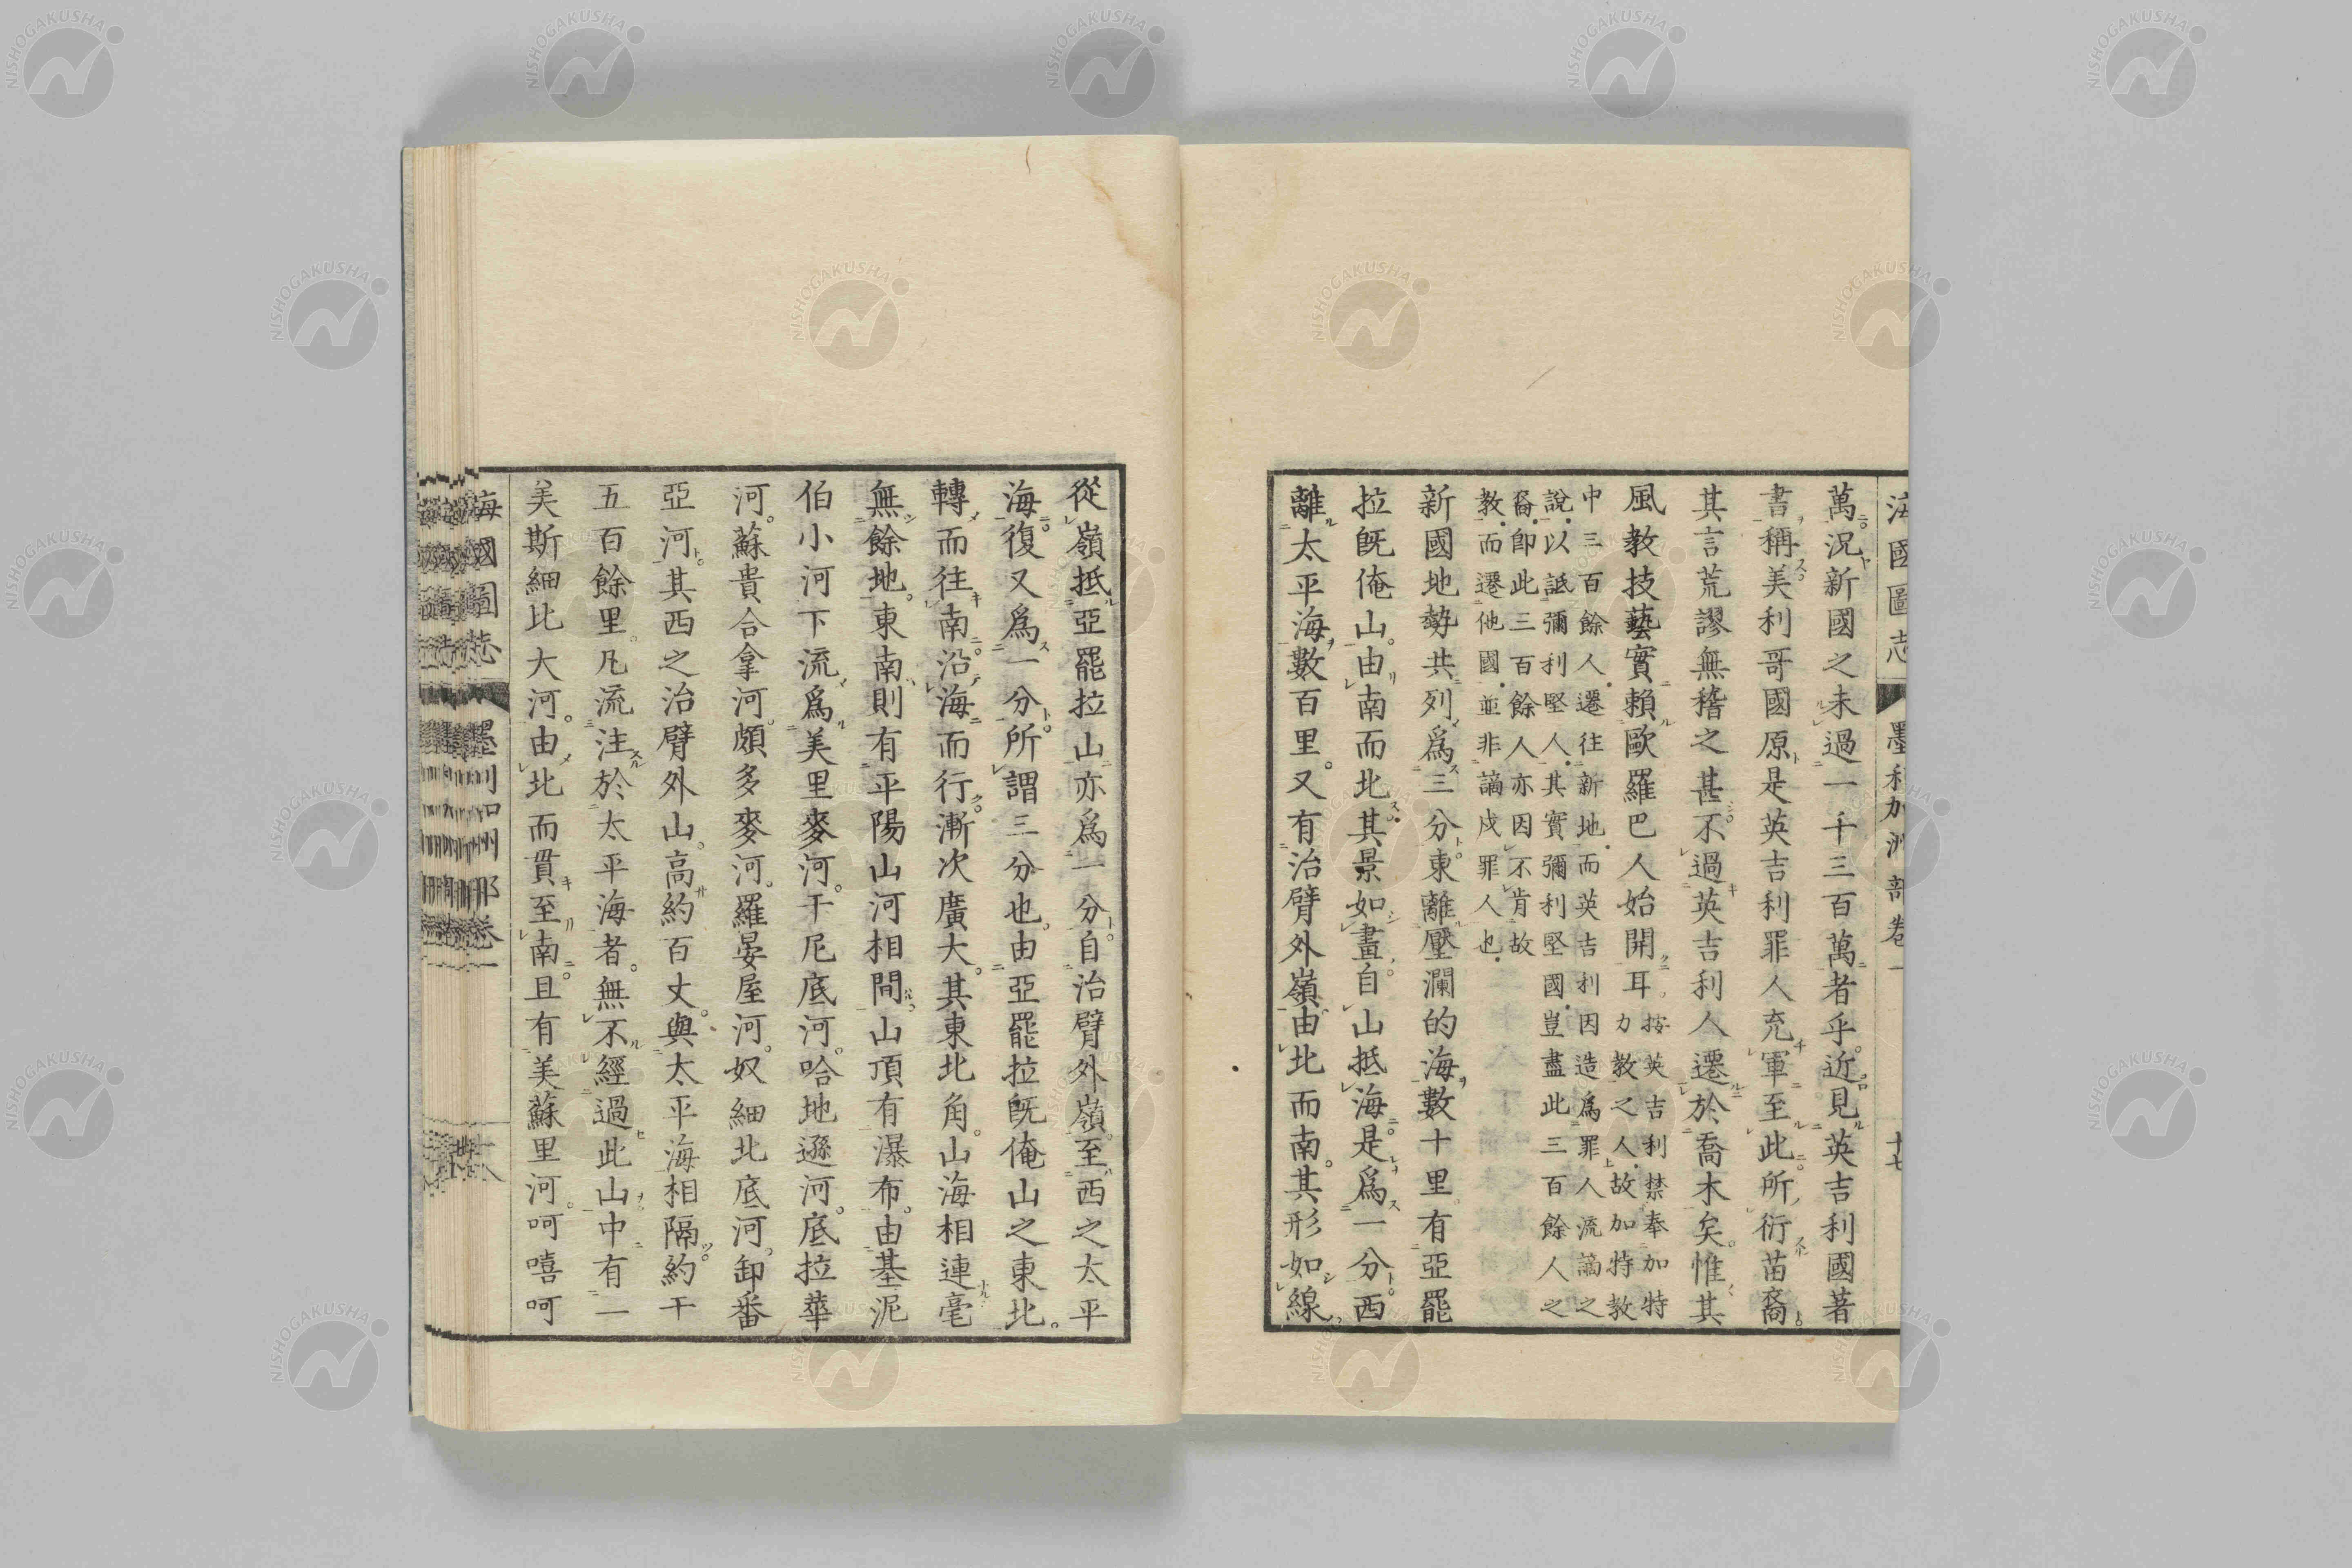 海國圖志 墨利加洲部卷一 十七
萬況新國之未過一千三百萬者乎近見英吉利國著
書稱美利哥國原是英吉利罪人充軍至此所衍苗裔
其言荒謬無稽之甚不過英吉利人遷於喬木矣惟其
風教技藝實賴歐羅巴人始開耳
按英吉利禁奉加特
力教之人故加特教
中三百餘人遷往新地而英吉利因造爲罪人流謫之
說以詆彌利堅人其實彌利堅國豈盡此三百餘人之
裔即此三百餘人亦因不肯故
教而遷他國並非謫戍罪人也
新國地勢共列爲三分東離壓瀾的海數十里有亞罷
拉旣俺山由南而北其景如畫自山抵海是爲一分西
離太平海數百里又有治臂外嶺由北而南其形如線
從嶺抵亞罷拉山亦爲一分自治臂外嶺至西之太平
海復又爲一分所謂三分也由亞罷拉旣俺山之東北
轉而往南沿海而行漸次廣大其東北角山海相連毫
無餘地東南則有平陽山河相間山頂有瀑布由基泥
伯小河下流爲美里麥河干尼底河哈地遜河底拉華
河蘇貴合拿河頗多麥河羅晏屋河奴細北底河卸番
亞河其西之治臂外山高約百丈與太平海相隔約千
五百餘里凡流注於太平海者無不經過此山中有一
美斯細比大河由北而貫至南且有美蘇里河呵嘻呵
海國圖志 墨利加洲部卷一 十八
NISHOGAKUSHA